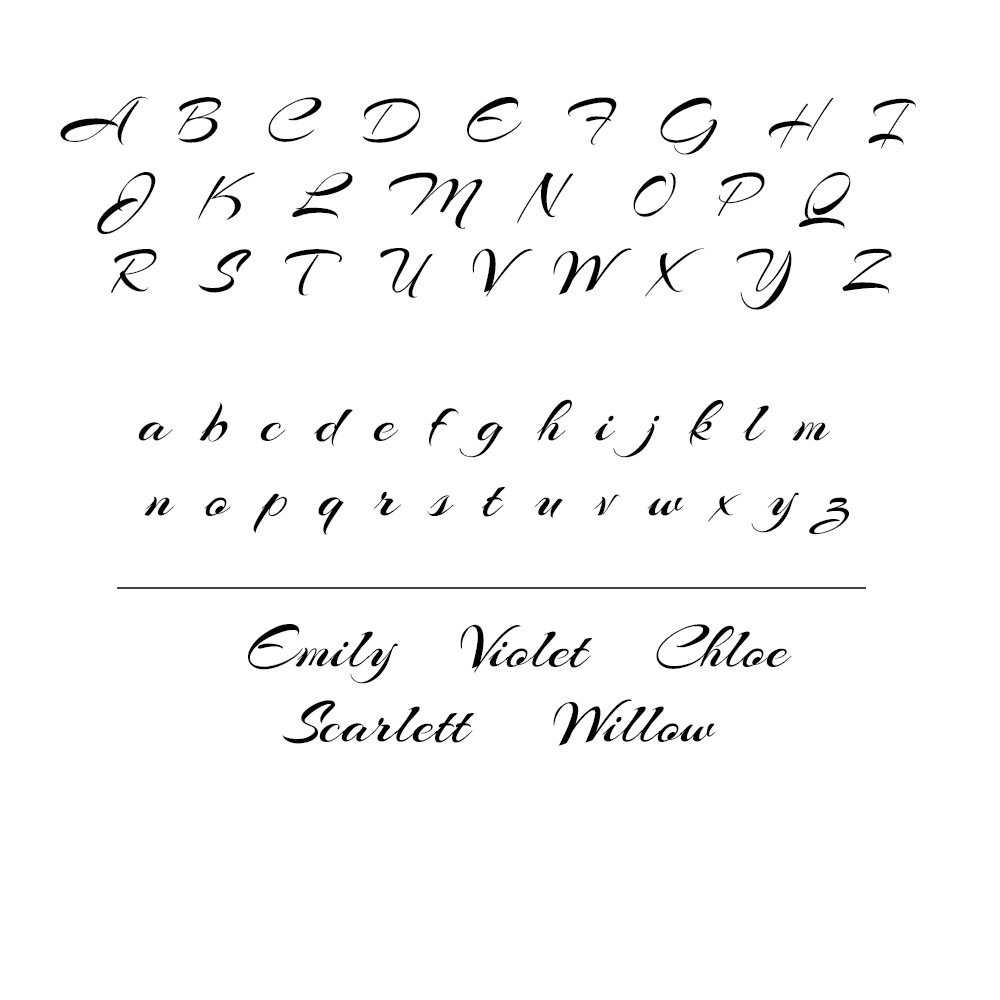 A B C D E F G H I
J K L M N O P Q
R S T U V W X Y Z
a b c d e f g h i j k l m
n o p q r s t u v w x y z
Emily Violet Chloe
Scarlett Willow